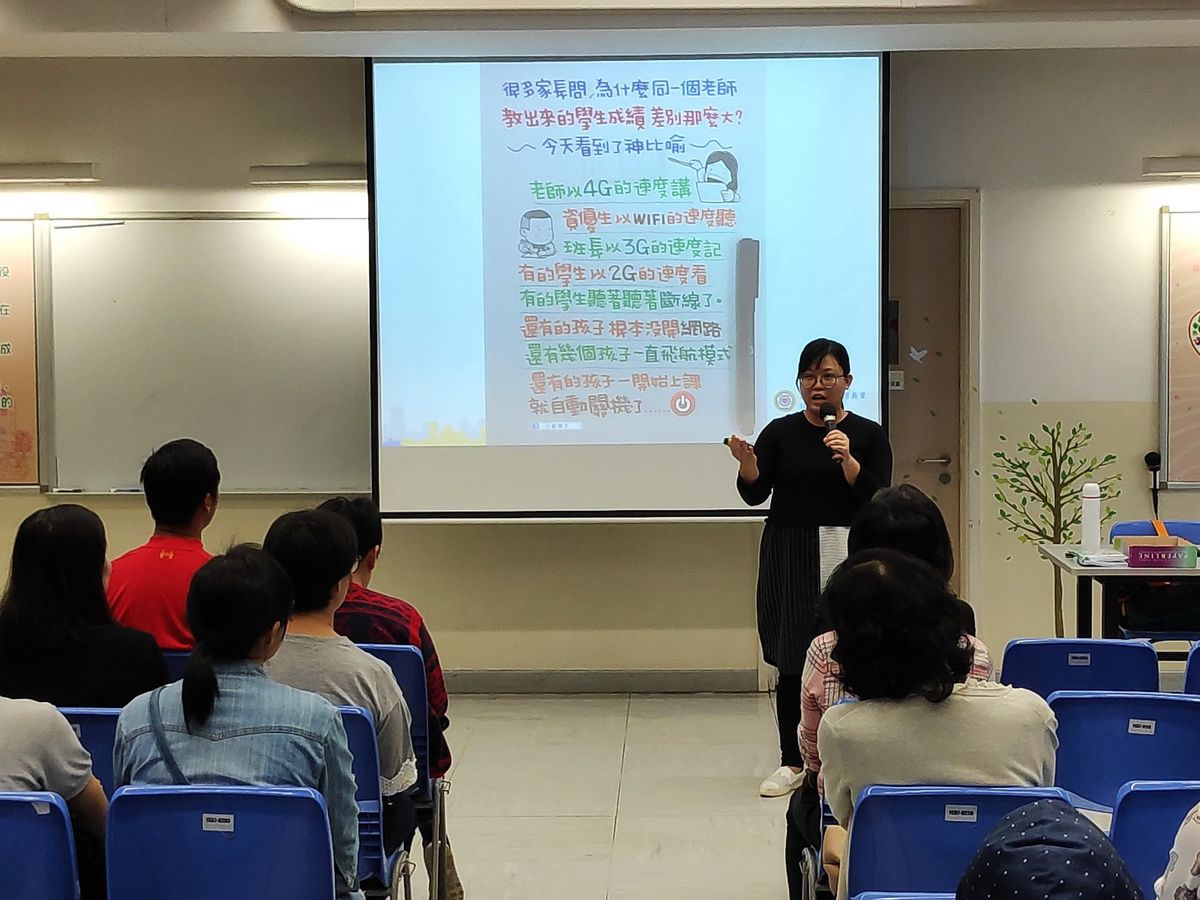 很多家長問，為什麼同一個老師
教出來的學生成績差別那麼大？
～今天看到了神比喻～
老師以4G的速度講
資優生以WIFI的速度聽
班長以3G的速度記
有的學生以2G的速度看
有的學生聽著聽著斷線了。
還有的孩子根本沒開網路
還有幾個孩子一直飛航模式
還有的孩子一開始上課
就自動關機了......
在
成
的
PAPERLINE